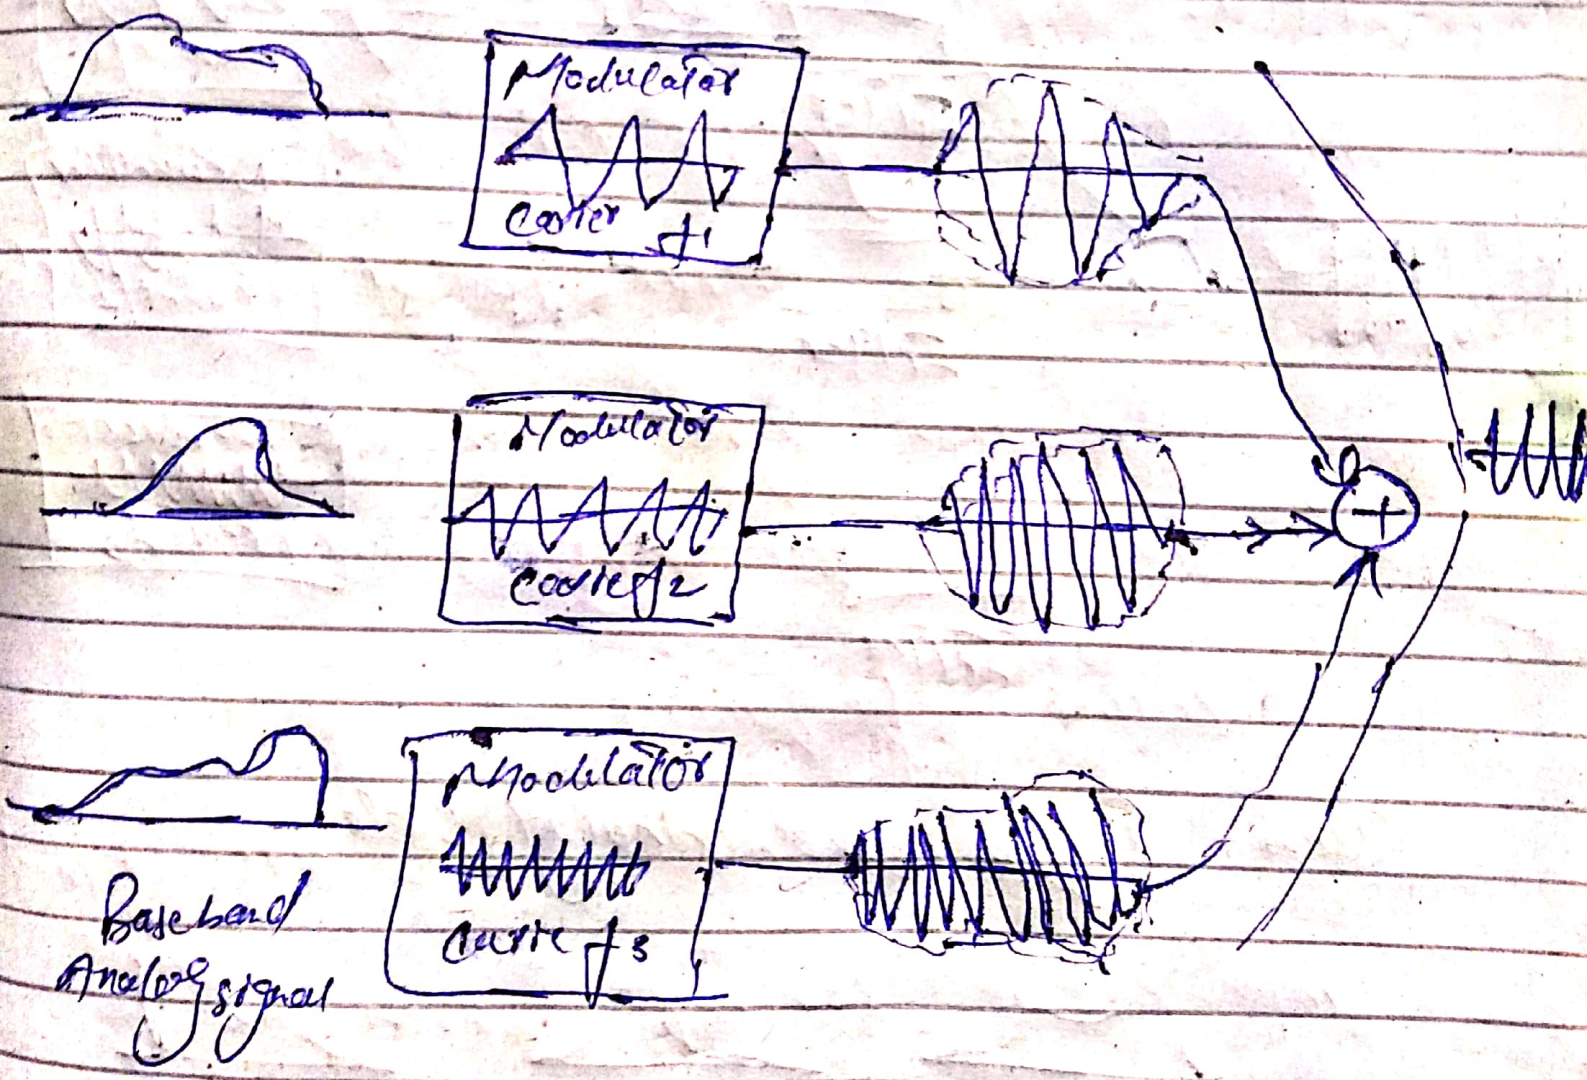 Modulator
Carrier f1
Modulator
Carrie f2
Modulator
Carrie f3
Baseband
Analog signal
+